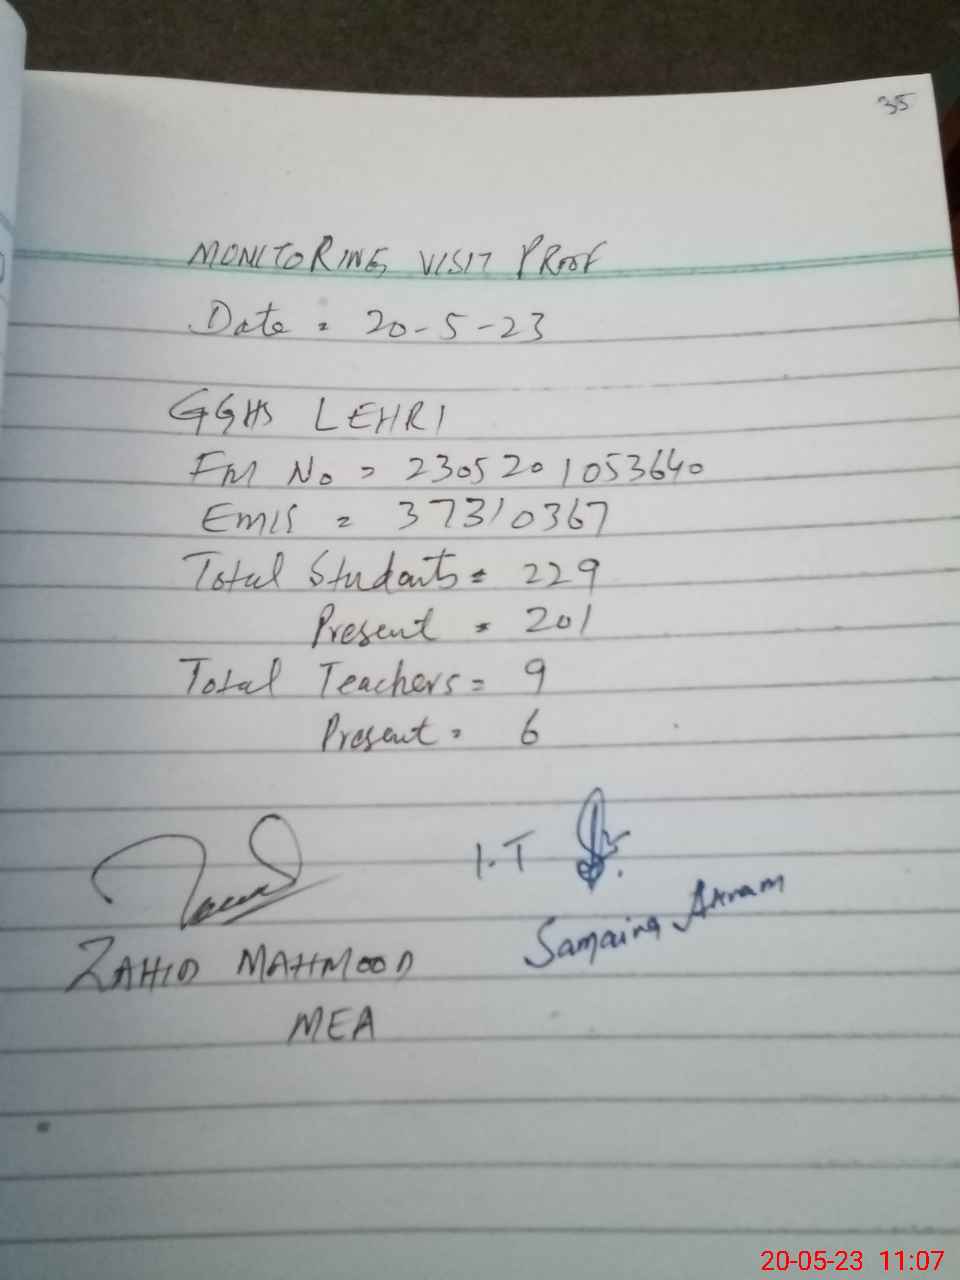 35
MONITORING VISIT PROOF
Date = 20-5-23
GGHS LEHRI
FM No = 2305201053640
Emis = 37310367
Total Students = 229
Present = 201
Total Teachers = 9
Present = 6
I.T
Samaira Akram
ZAHID MAHMOOD
MEA
20-05-23 11:07